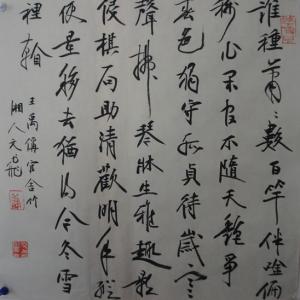 誰種蕭〻數百竿伴吟偏
稱心閑官不隨夭艷爭
春色獨守孤貞待歲寒
聲拂琴牀生雅趣影
侵棋局助清歡明年縱
便量移去猶得今冬雪
裡看
王禹偁官舍竹
湘人文飛